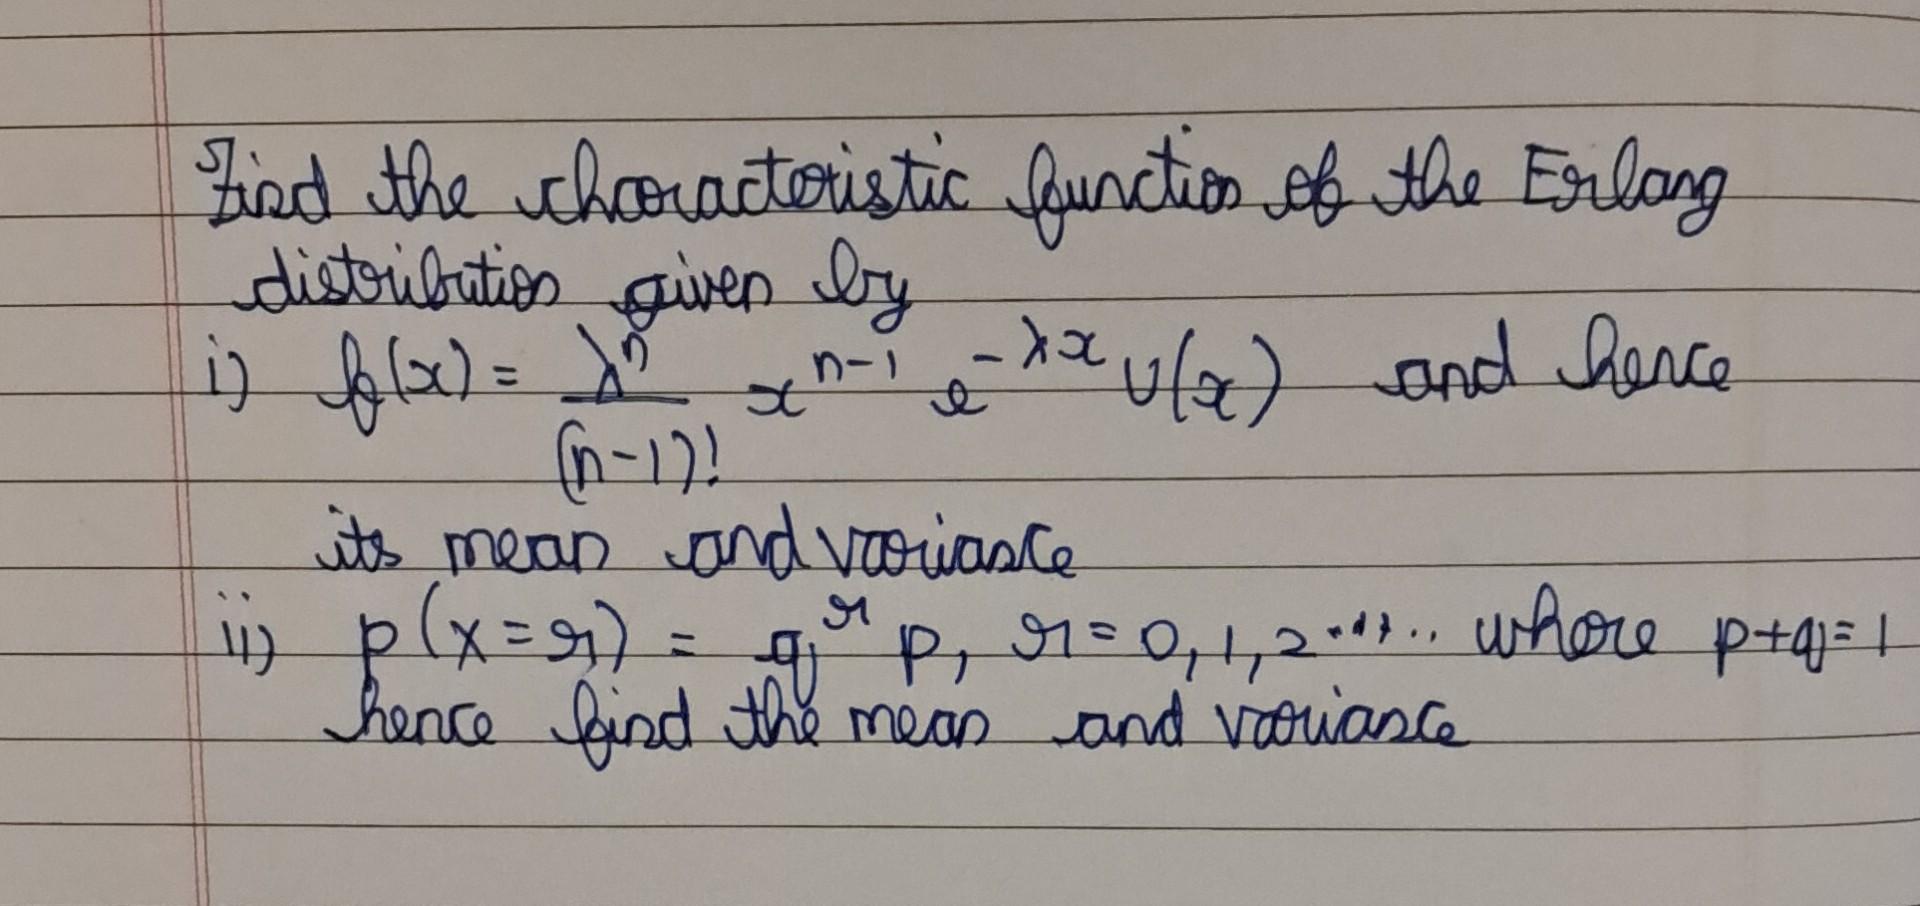 Find the characteristic function of the Erlang
distribution given by
i) f(x) = λⁿ/(n-1)! x^(n-1) e^(-λx) U(x) and hence
its mean and variance
ii) p(x=r) = q^r p, r=0,1,2...... where p+q=1
hence find the mean and variance